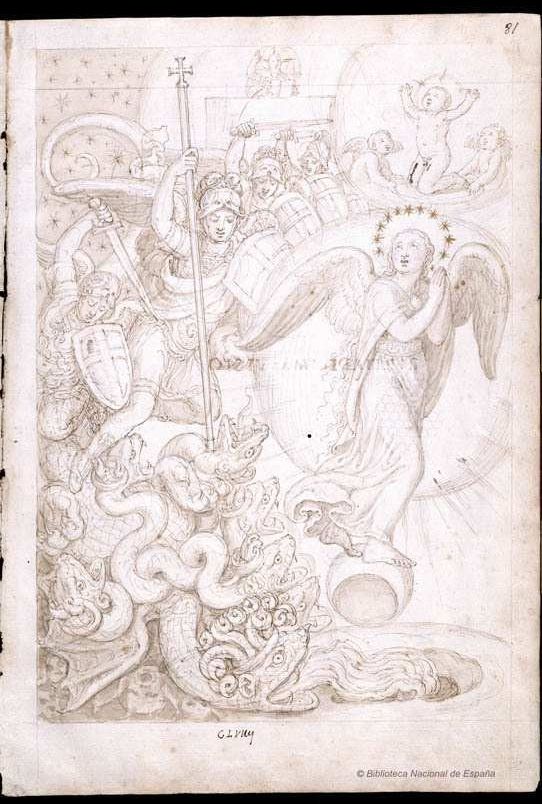 81
CLVIIJ
© Biblioteca Nacional de España